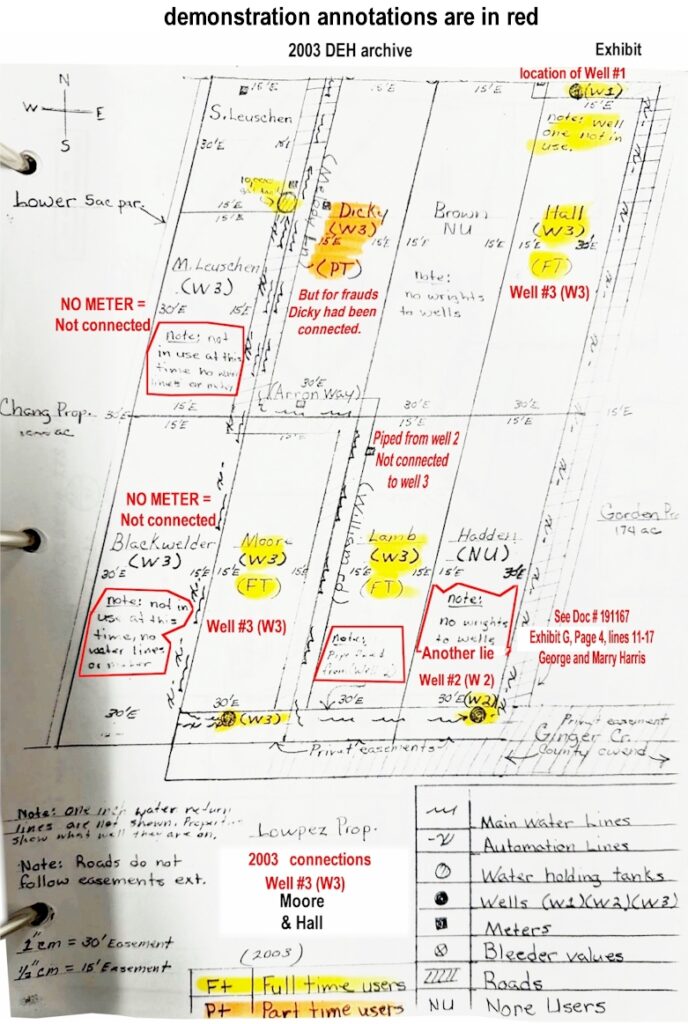 demonstration annotations are in red
2003 DEH archive
Exhibit
location of Well #1
N
W
E
S
15'E
15'E
15'E
(W1)
15'E
S. Leuschen
note: well
one not in
use.
30'E
15'E
Lower 5ac par.
10,000
15'E
15'E
Dicky
(W3)
15'E
15'E
(PT)
Brown
NU
15'E
15'E
Hall
(W3)
30'E
(FT)
M. Leuschen
(W3)
Note:
no wrights
to wells
Well #3 (W3)
NO METER =
Not connected
30'E
15'E
But for frauds
Dicky had been
connected.
Note; not
in use at this
time no
lines or
30'E
(Arron Way)
Chang Prop.
30'E
15'E
15'E
30'E
15'E
30'E
15'E
15'E
Piped from well 2
Not connected
to well 3
NO METER =
Not connected
(Willson Rd)
Garden
174 ac
Blackwelder
(W3)
30'E
15'E
Moore
(W3)
15'E
15'E
(FT)
Lamb
(W3)
15'E
15'E
(FT)
Hadden
(NU)
30'E
note: not in
use at this
time, no
water lines
or meter
Well #3 (W3)
note:
Pipe
from Well 2
note:
no wrights
to wells
Another lie
Well #2 (W 2)
See Doc # 191167
Exhibit G, Page 4, lines 11-17
George and Marry Harris
30'E
30'E
(W3)
30'E
30'E
(W2)
Privat easements
Privat easement
Ginger Cr.
County owend
Note: One inch water return
lines are not shown.
show what well they are on.
Lowpez Prop.
Note: Roads do not
follow easements ext.
2003 connections
Well #3 (W3)
Moore
& Hall
1"cm = 30' Easement
½"cm = 15' Easement
(2003)
Ft Full time users
Pt Part time users
Main Water Lines
Automation Lines
Water holding tanks
Wells (W1)(W2)(W3)
Meters
Bleeder values
Roads
NU None Users